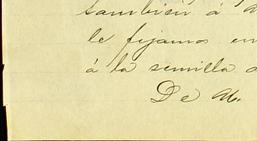 también á
le fijamos en
á la semilla
De